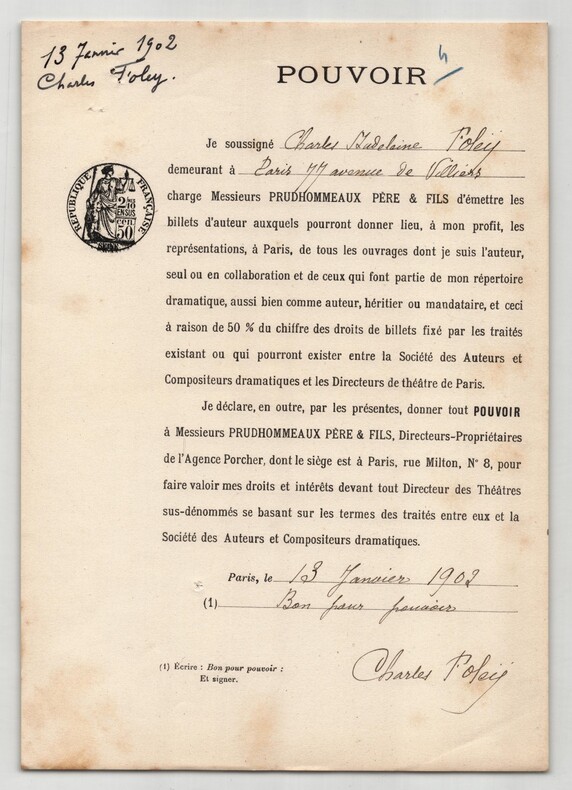 13 Janvier 1902
Charles Foleÿ.
POUVOIR
Je soussigné Charles Madeleine Foleÿ
demeurant à Paris 77 avenue de Villiers
charge Messieurs PRUDHOMMEAUX PÈRE & FILS d'émettre les
billets d'auteur auxquels pourront donner lieu, à mon profit, les
représentations, à Paris, de tous les ouvrages dont je suis l'auteur,
seul ou en collaboration et de ceux qui font partie de mon répertoire
dramatique, aussi bien comme auteur, héritier ou mandataire, et ceci
à raison de 50 % du chiffre des droits de billets fixé par les traités
existant ou qui pourront exister entre la Société des Auteurs et
Compositeurs dramatiques et les Directeurs de théâtre de Paris.
Je déclare, en outre, par les présentes, donner tout POUVOIR
à Messieurs PRUDHOMMEAUX PÈRE & FILS, Directeurs-Propriétaires
de l'Agence Porcher, dont le siège est à Paris, rue Milton, N° 8, pour
faire valoir mes droits et intérêts devant tout Directeur des Théâtres
sus-dénommés se basant sur les termes des traités entre eux et la
Société des Auteurs et Compositeurs dramatiques.
Paris, le 13 Janvier 1902
(1) Bon pour pouvoir
(1) Écrire : Bon pour pouvoir :
Et signer.
Charles Foleÿ
RÉPUBLIQUE FRANÇAISE
EN SUS
50
SEINE